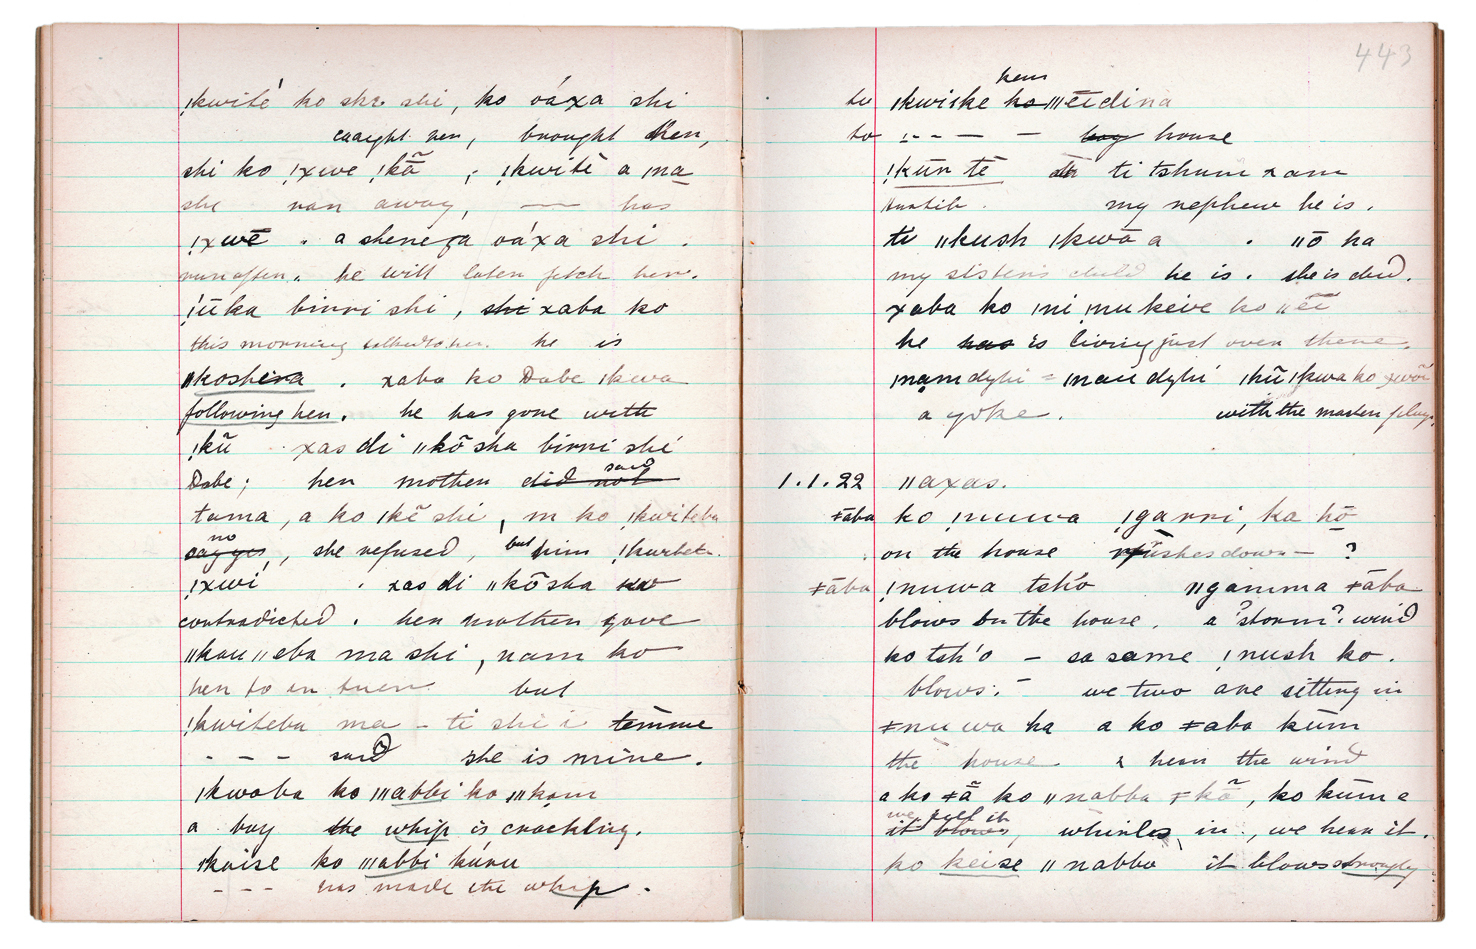 ǃkwitè ko ska shi, ko oáxa shi
caught her, brought then,
shi ko ǃxwe ǃkã ; ǃkwitè a ma
she ran away, — has
ǃxwē . a shenega oáxa shi .
run often. he will later fetch her.
ǃūka binni shi, shi xaba ko
this morning talked to her. he is
ǁkoshera . xaba ko Dabe ǀkwa
following her. he has gone with
ǃkū xas di ǁkōsha binni shi
Dabe; her mother did not said
tama, a ko ǀkē shi, m ko ǃkwiteba
no
says yes, she refused, but him ǃkwiteb.
ǃxwi . xas di ǁkōsha
contradicted . her mother gave
ǁkau ǁeba ma shi, nam ko
her to but
ǃkwiteba ma - ti shi i temme
- - - said she is mine.
ǀkwaba ko ǁǀabbi ko ǁǀkam
a boy the whip is crackling.
ǀkaise ko ǁǀabbi kúru
- - - has made the whip .
443
kem
tu ǀkwiske ko ǁǀēīdina
to - - — — boy house
ǃkūn tē ti tshum xam
Auntib . my nephew he is.
ti ǁkush ǀkwā a . ǁō ha
my sister's child he is. she is dead.
xaba ko ǀni ǀnu keive ko ǁēī
he has is living just over there.
ǀnam dyhi = ǀnau dyhi ǀkū ǀkwa ko xwōi
a yoke. with the master plays
1.1.22 ǁaxas.
ǂaba ko ǃnuwa ǃgarri, ka hō
on the house rushes down — ?
ǂāba ǃnuwa tsh'o ǁgamma ǂāba
blows on the house. a ?storm? wind
ko tsh'o - sa same ǃnush ko.
blows: - we two are sitting in
ǂnuwa ha a ko ǂaba kūm
the house & hear the wind
a ko ǂā ko ǁnabba ǂkã, ko kūm e
we feel it
it blows, whirls in, we hear it.
ko keise ǁnabba it blows strongly